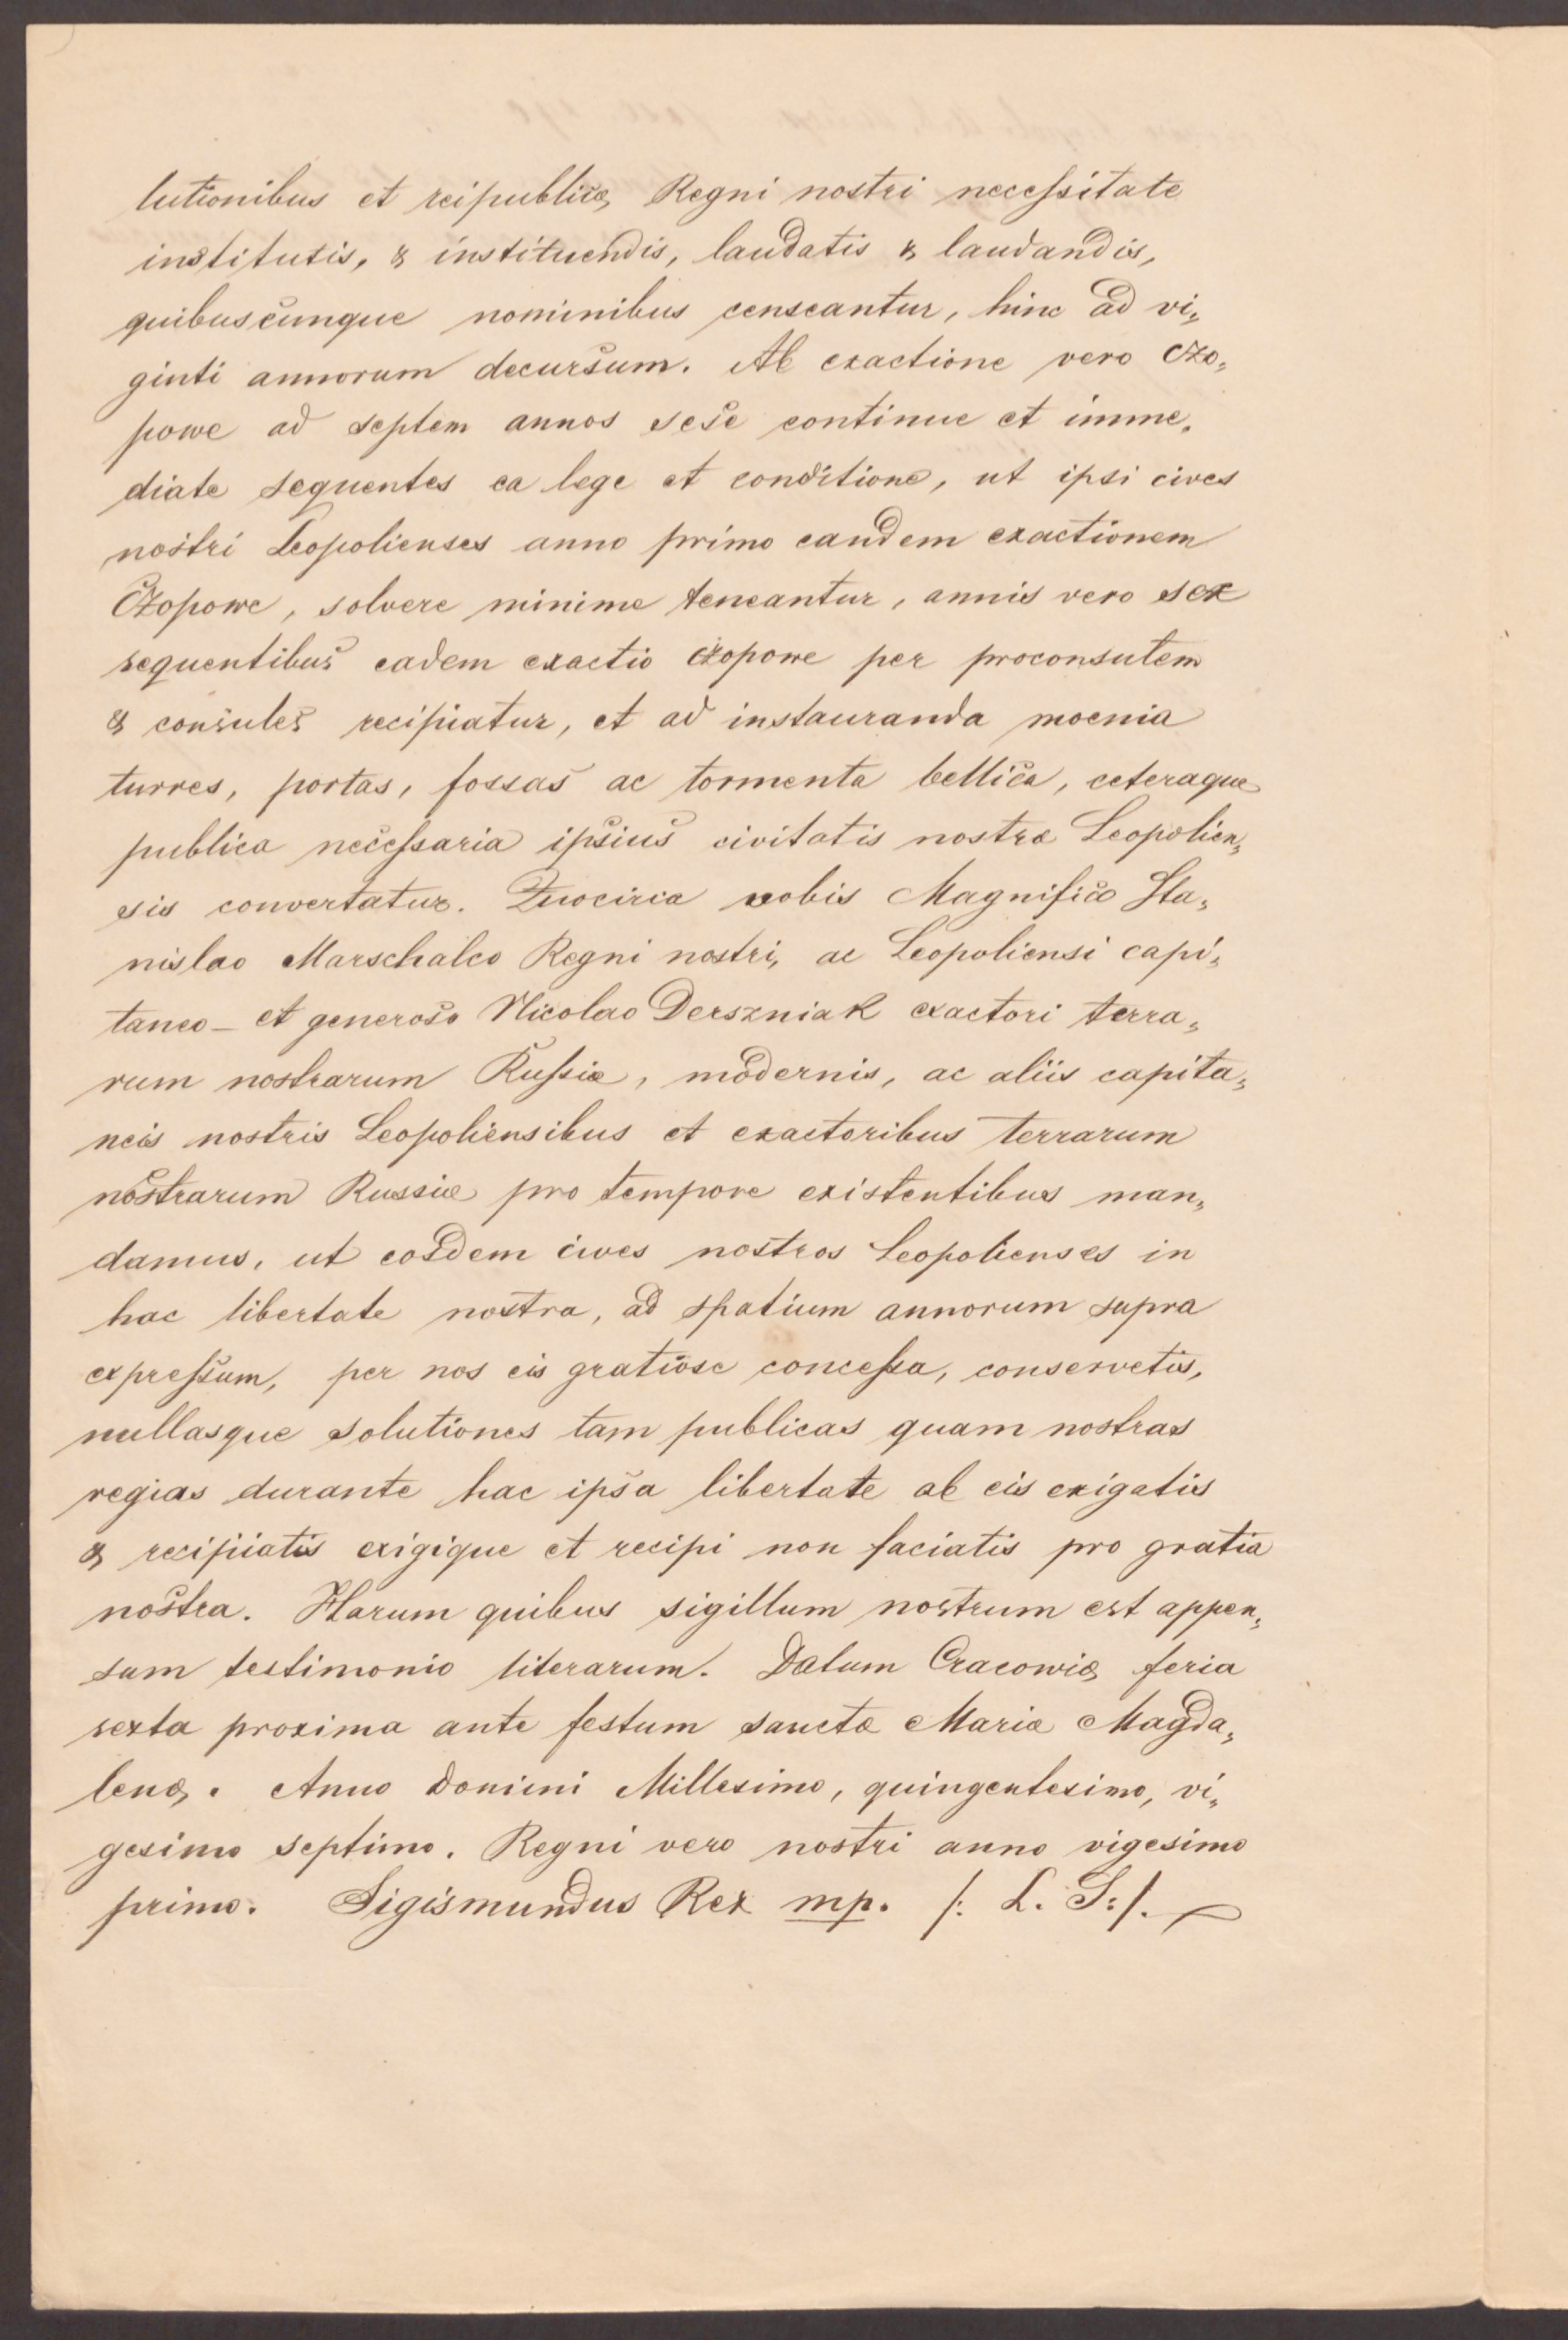 lutionibus et reipublicæ Regni nostri necessitate
institutis, & instituendis, laudatis & laudandis,
quibuscunque nominibus censeantur, hinc ad vi„
ginti annorum decursum. Ab exactione vero Czo„
powe ad septem annos sese continue et imme„
diate sequentes ea lege et conditione, ut ipsi cives
nostri Leopolienses anno primo eandem exactionem
Czopowe, solvere minime teneantur, annis vero sex
sequentibus eadem exactio czopowe per proconsulem
& consules recipiatur, et ad instauranda moenia
turres, portas, fossas ac tormenta bellica, ceteraque
publica necessaria ipsius civitatis nostræ Leopolien„
sis convertatur. Quocirca vobis Magnifico Sta„
nislao Marschalco Regni nostri, ac Leopoliensi capi„
taneo – et generoso Nicolao Derszniak exactori terra„
rum nostrarum Russiæ, modernis, ac aliis capita„
neis nostris Leopoliensibus et exactoribus terrarum
nostrarum Russiæ pro tempore existentibus man„
damus, ut eosdem cives nostros Leopolienses in
hac libertate nostra, ad spatium annorum supra
expressum, per nos eis gratiose concessa, conservetis,
nullasque solutiones tam publicas quam nostras
regias durante hac ipsa libertate ab eis exigatis
& recipiatis exigique et recipi non faciatis pro gratia
nostra. Harum quibus sigillum nostrum est appen„
sum testimonio literarum. Datum Cracowiæ feria
sexta proxima ante festum sanctæ Mariæ Magda„
lenæ. Anno Domini Millesimo, quingentesimo, vi„
gesimo septimo. Regni vero nostri anno vigesimo
primo. Sigismundus Rex mp. /: L. S:/.